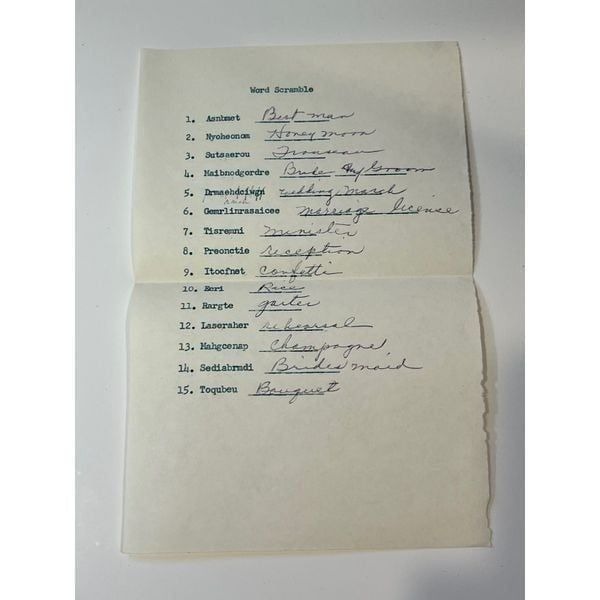 Word Scramble
1. Asnbmet Best man
2. Nyoheonom Honey moon
3. Sutsaerou Trousseau
4. Maibnodgordre Bride & Groom
5. Drmaehdciwgn wedding march
6. Gemrlinrasaicee marriage license
7. Tisremni minister
8. Preonctie reception
9. Itocfnet confetti
10. Ecri Rice
11. Rargte garter
12. Laseraher rehearsal
13. Mahgcenap Champagne
14. Sediabrmdi Brides maid
15. Toqubeu Bouquet